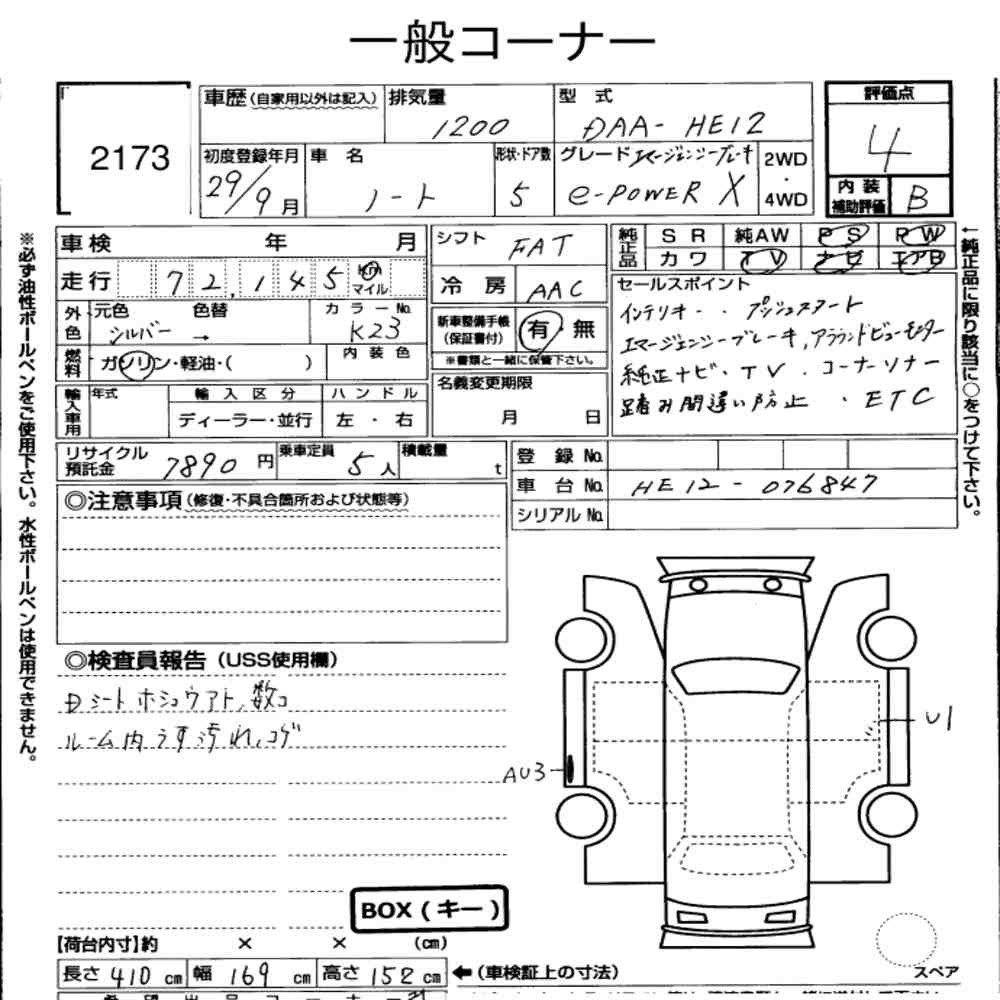 一般コーナー
2173
車歴(自家用以外は記入) 排気量 1200 型式 DAA-HE12
評価点 4
内装補助評価 B
初度登録年月 29/9月 車名 ノート 形状・ドア数 5 グレード エマージェンシーブレーキ e-POWER X 2WD・4WD
車検 年 月
走行 72,145 km マイル
外色 元色 シルバー → 色替 カラーNo. K23
燃料 ガソリン・軽油・( ) 内装色
輸入車用 年式 輸入区分 ディーラー・並行 ハンドル 左・右
シフト FAT
冷房 AAC
新車整備手帳(保証書付) 有・無
※書類と一緒に保管下さい。
名義変更期限 月 日
純正品 SR 純AW PS PW
カワ TV ナビ エアB
セールスポイント
インテリキー・プッシュスタート
エマージェンシーブレーキ,アラウンドビューモニター
純正ナビ・TV・コーナーソナー
踏み間違い防止・ETC
リサイクル預託金 7890円 乗車定員 5人 積載量 t
登録No.
車台No. HE12-076847
シリアルNo.
◎注意事項(修復・不具合箇所および状態等)
◎検査員報告(USS使用欄)
Dシートホシュウアト,数コ
ルーム内うす汚れ,コゲ
U1
AU3
BOX(キー)
【荷台内寸】約 × × (cm)
長さ 410 cm 幅 169 cm 高さ 152 cm ←(車検証上の寸法)
スペア
※必ず油性ボールペンをご使用下さい。水性ボールペンは使用できません。
←純正品に限り該当に○をつけて下さい。